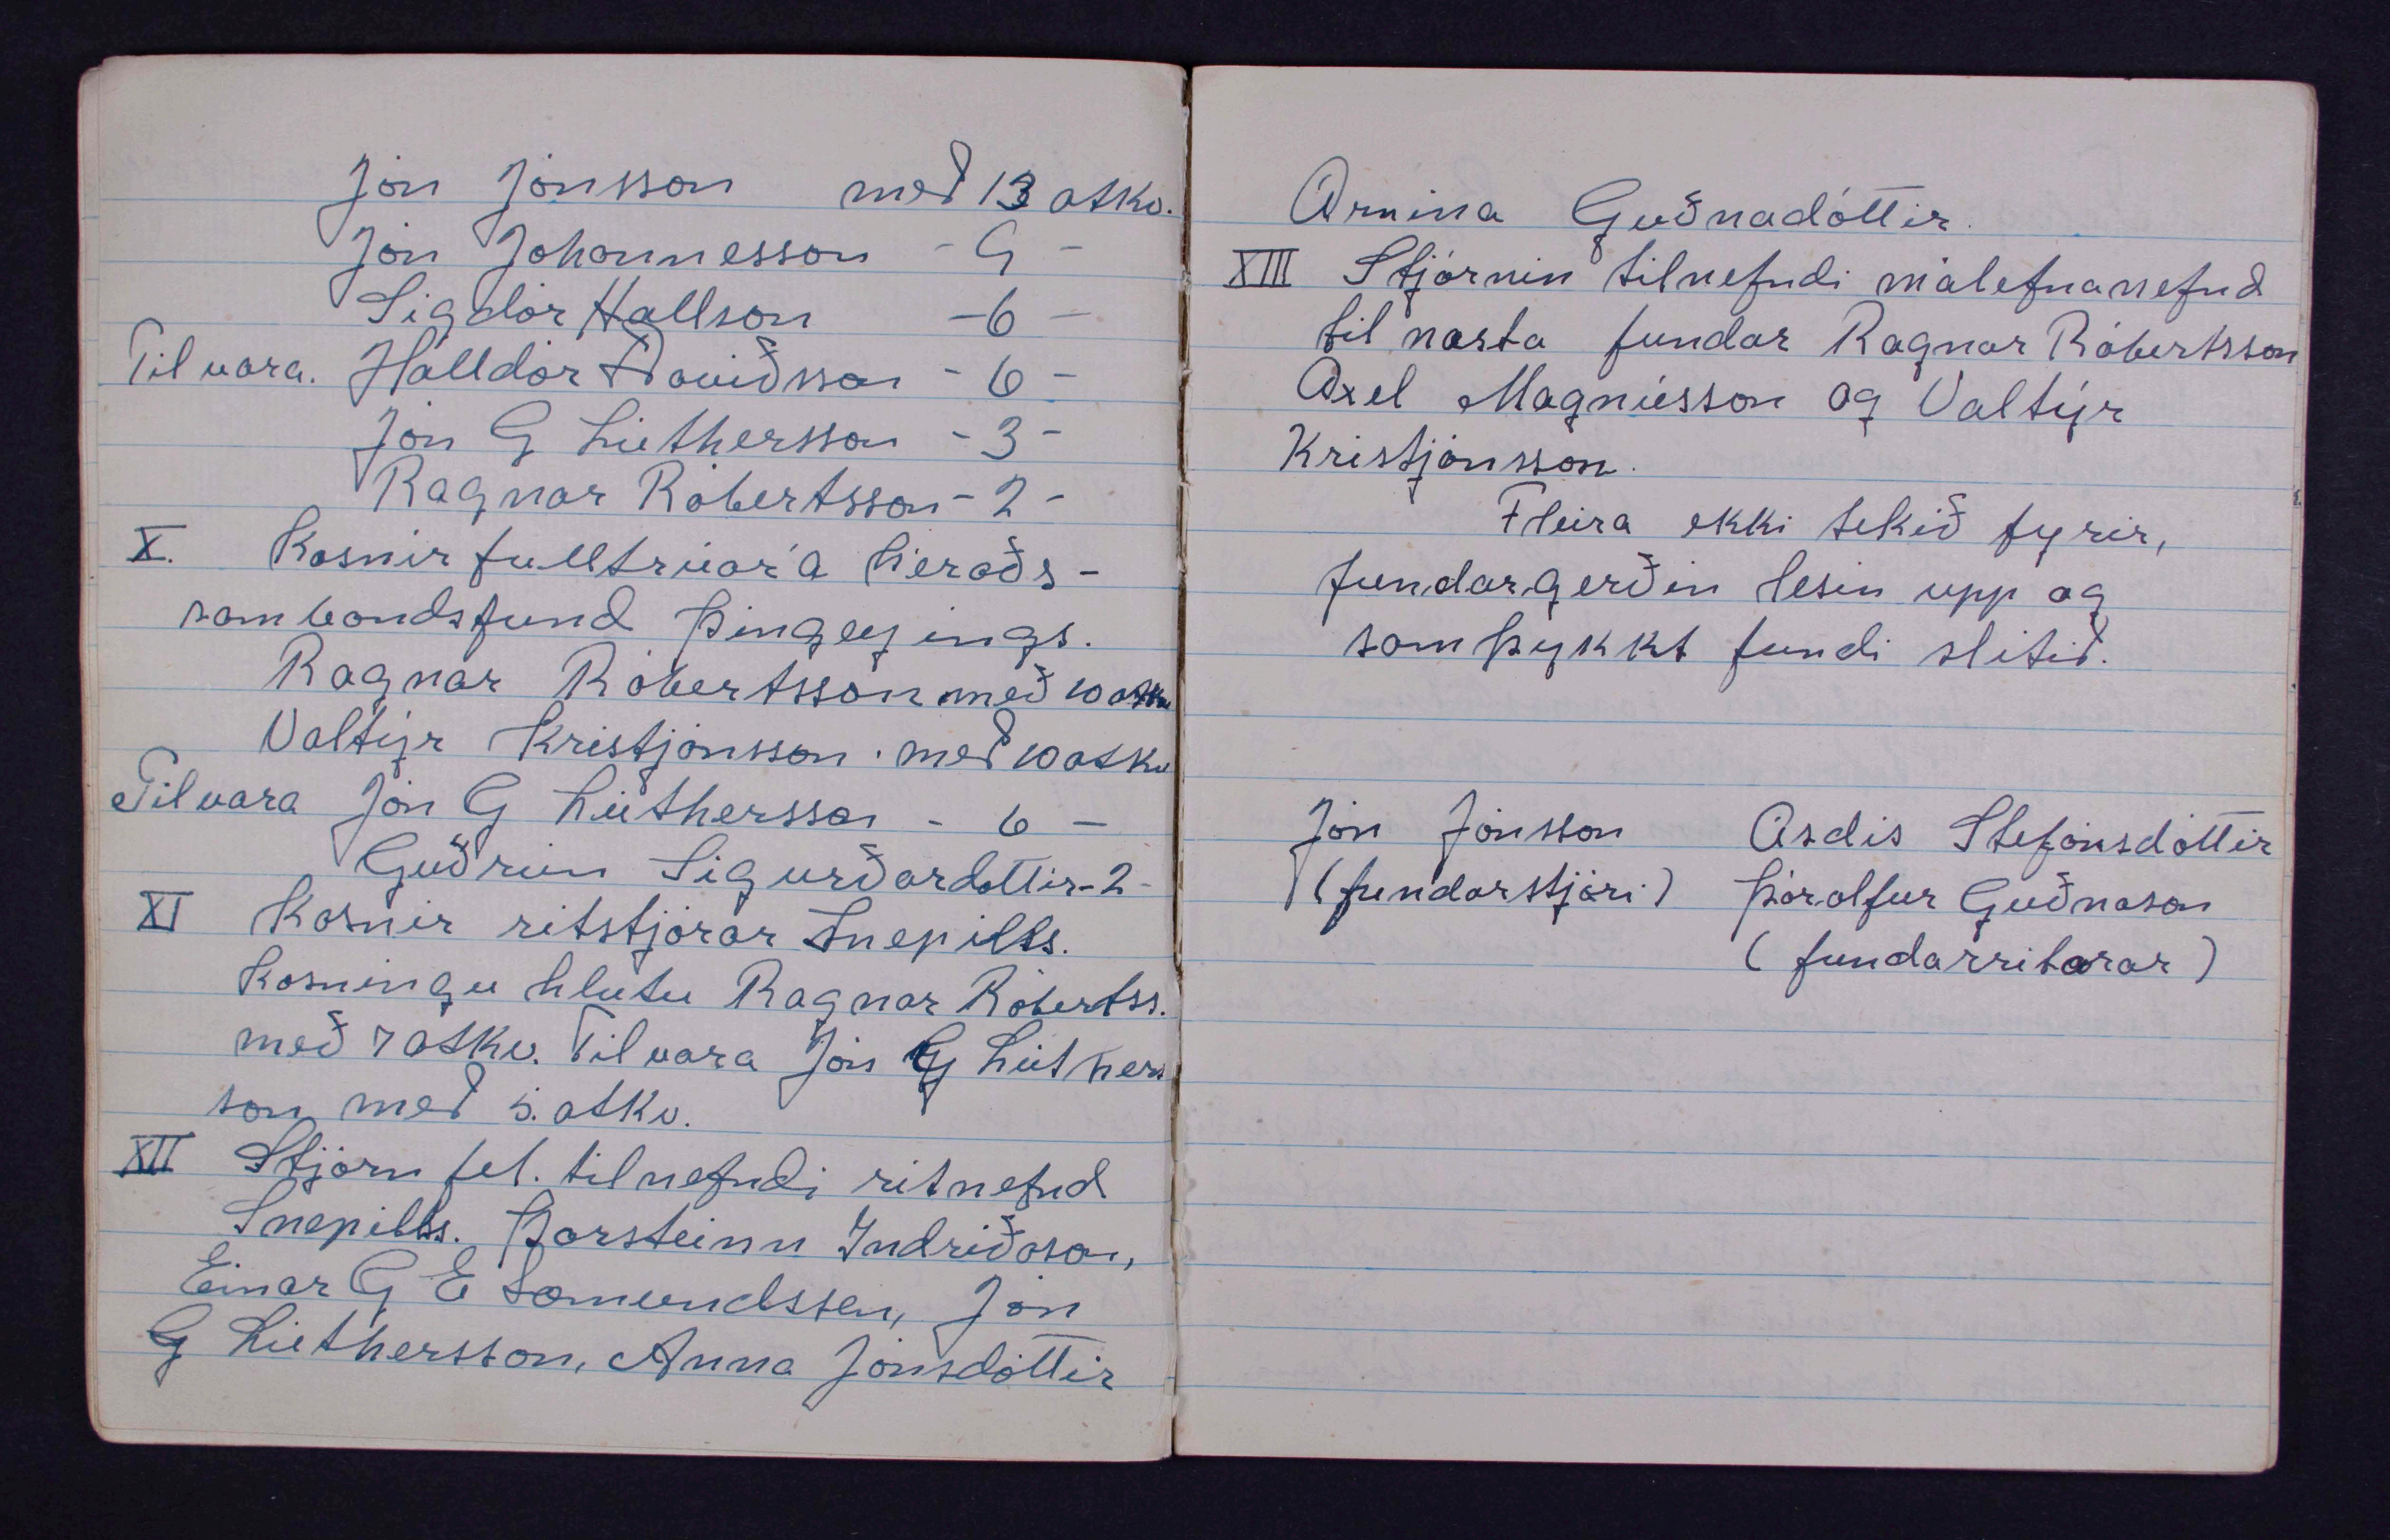 Jón Jónsson með 13 atkv.
Jón Jóhannesson - 9 -
Sigdór Hallson - 6 -
Til vara. Halldór Davíðsson - 6 -
Jón G Lúthersson - 3 -
Ragnar Róbertsson - 2 -
X. Kosnir fulltrúar á héraðs-
sambandsfund Þingeyings.
Ragnar Róbertsson með 10 atkv
Valtýr Kristjánsson. með 10 atkv
Til vara Jón G Lúthersson - 6 -
Guðrún Sigurðardóttir - 2 -
XI Kosnir ritstjórar Snepills.
Kosningu hlutu Ragnar Róbertss.
með 7 atkv. Til vara Jón G Lúthers
son með 5. atkv.
XII Stjórn fél. tilnefndi ritnefnd
Snepills. Þorsteinn Indriðason,
Einar G E Sæmundssen, Jón
G Lúthersson, Anna Jónsdóttir
Arnína Guðnadóttir.
XIII Stjórnin tilnefndi málefnanefnd
til næsta fundar Ragnar Róbertsson
Axel Magnússon og Valtýr
Kristjánsson.
Fleira ekki tekið fyrir,
fundargerðin lesin upp og
samþykkt fundi slitið.
Jón Jónsson Ásdís Stefánsdóttir
(fundarstjóri) Þórólfur Guðnason
(fundarritarar)